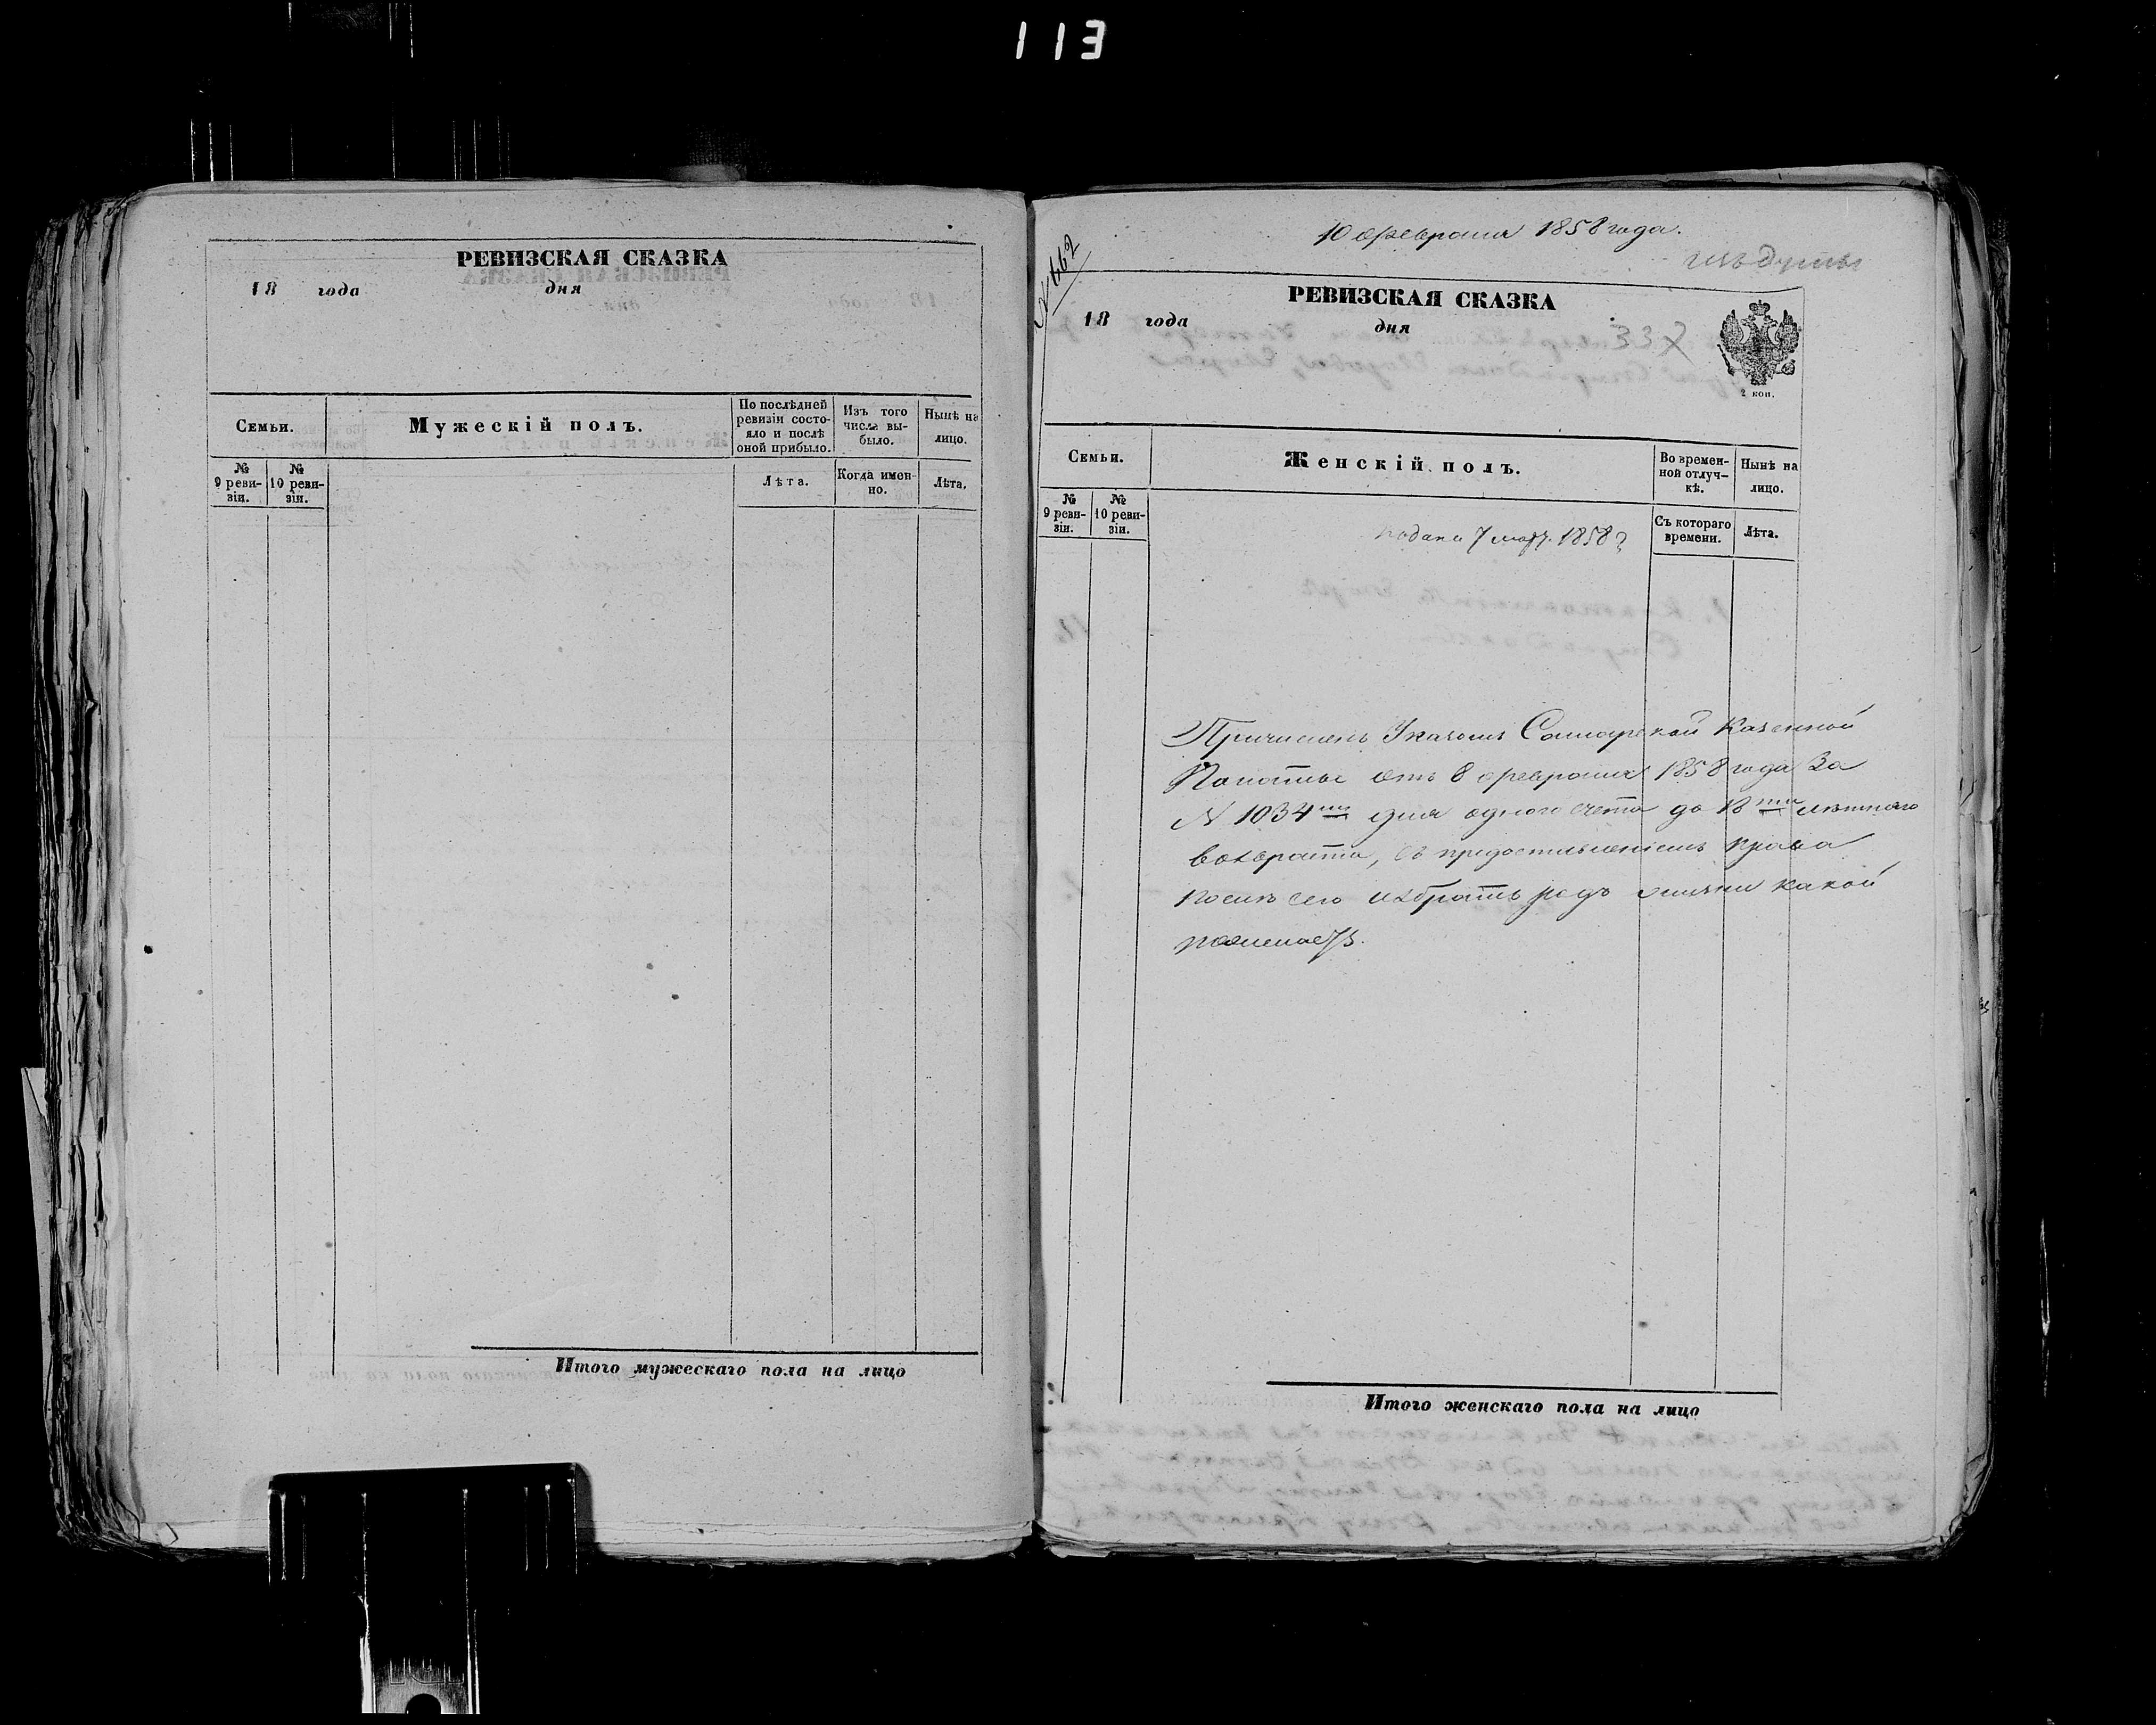 113
РЕВИЗСКАЯ СКАЗКА
18 года дня
Семьи.
Мужескій полъ.
По послѣдней ревизіи состо-
яло и послѣ
оной прибыло.
Изъ того
числа вы-
было.
Нынѣ на
лицо.
№
9 реви-
зіи.
№
10 реви-
зіи.
Лѣта.
Когда имен-
но.
Лѣта.
Итого мужескаго пола на лицо
10 февраля 1858 года.
№ 662
РЕВИЗСКАЯ СКАЗКА
18 года дня
337
2 коп.
Семьи.
Женскій полъ.
Во времен-
ной отлуч-
кѣ.
Нынѣ на
лицо.
№
9 реви-
зіи.
№
10 реви-
зіи.
Съ котораго
времени.
Лѣта.
подана 7 мар. 1858 г
Причисленъ Указомъ Самарской Казенной
Палаты отъ 8 февраля 1858 года за
№ 1034 для одного счета до 18 ти лѣтняго
возраста, съ предоставленіемъ права
послѣ сего избрать родъ жизни какой
пожелаетъ.
Итого женскаго пола на лицо